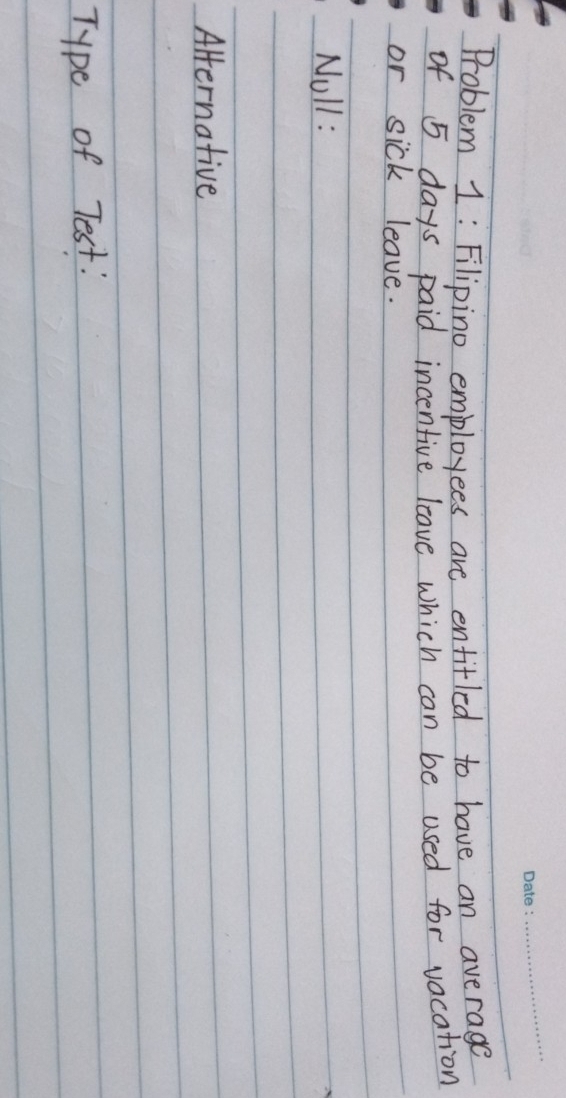 Date :
Problem 1 : Filipino employees are entitled to have an average
of 5 days paid incentive leave which can be used for vacation
or sick leave.
Null :
Alternative
Type of Test :